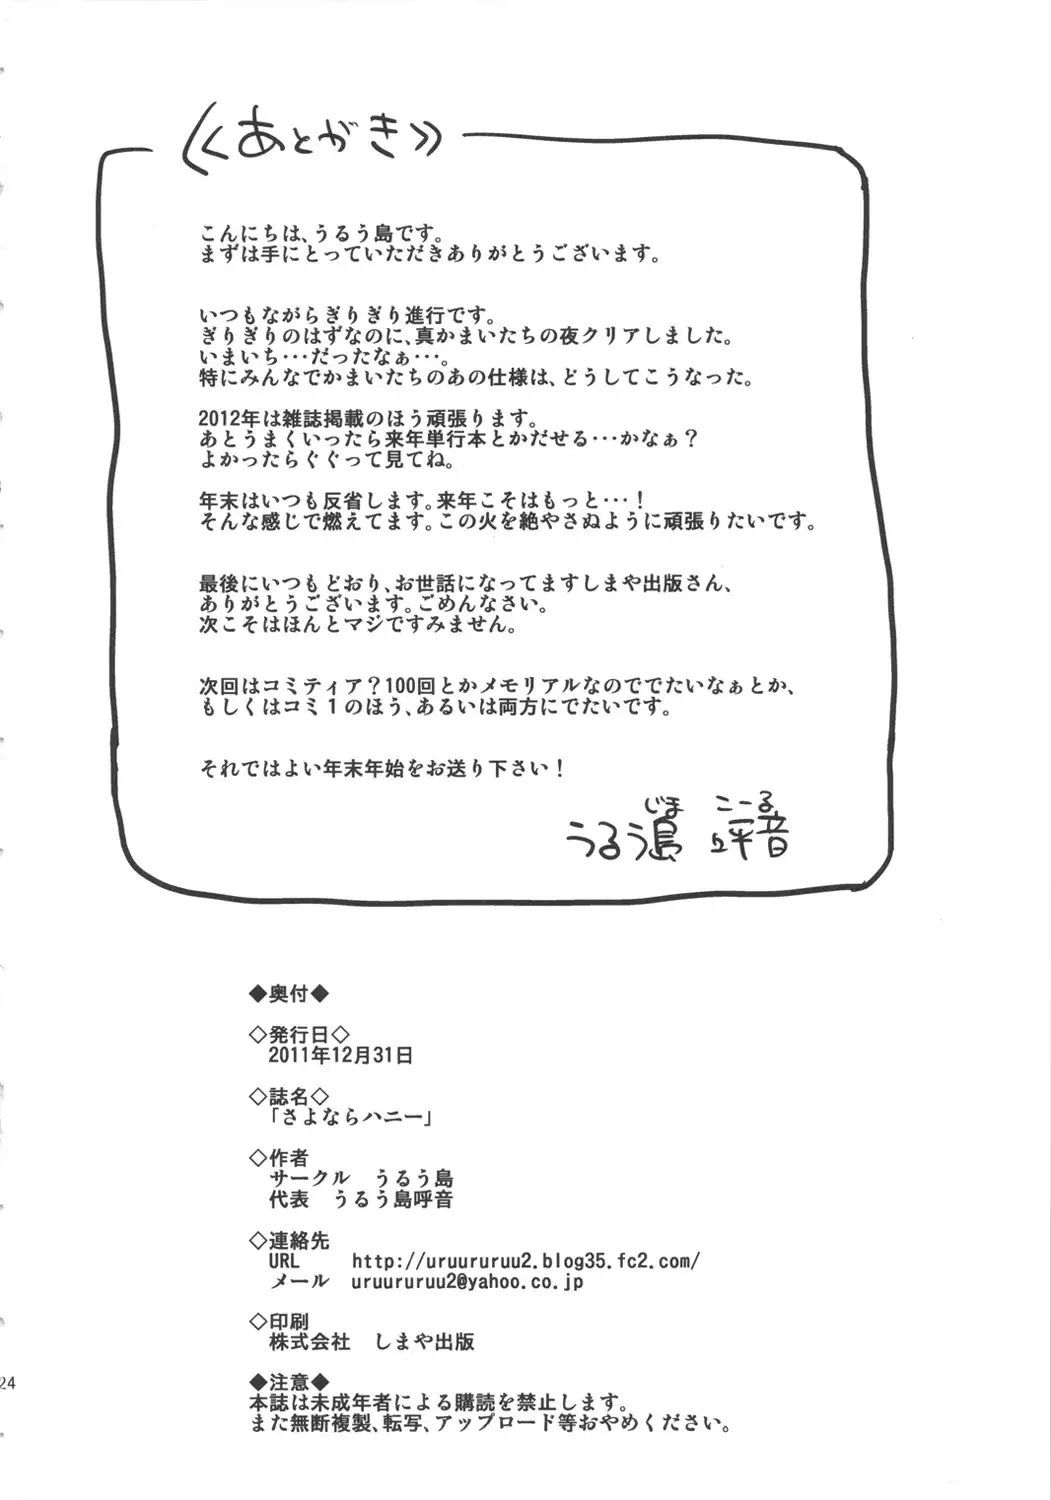 ≪あとがき≫
こんにちは、うるう島です。
まずは手にとっていただきありがとうございます。
いつもながらぎりぎり進行です。
ぎりぎりのはずなのに、真かまいたちの夜クリアしました。
いまいち･･･だったなぁ･･･。
特にみんなでかまいたちのあの仕様は、どうしてこうなった。
2012年は雑誌掲載のほう頑張ります。
あとうまくいったら来年単行本とかだせる･･･かなぁ？
よかったらぐぐって見てね。
年末はいつも反省します。来年こそはもっと･･･！
そんな感じで燃えてます。この火を絶やさぬように頑張りたいです。
最後にいつもどおり、お世話になってますしまや出版さん、
ありがとうございます。ごめんなさい。
次こそはほんとマジですみません。
次回はコミティア？100回とかメモリアルなのででたいなぁとか、
もしくはコミ１のほう、あるいは両方にでたいです。
それではよい年末年始をお送り下さい！
じま こーる
うるう島 呼音
◆奥付◆
◇発行日◇
2011年12月31日
◇誌名◇
「さよならハニー」
◇作者
サークル　うるう島
代表　うるう島呼音
◇連絡先
URL　http://uruururuu2.blog35.fc2.com/
メール　uruururuu2@yahoo.co.jp
◇印刷
株式会社　しまや出版
◆注意◆
本誌は未成年者による購読を禁止します。
また無断複製、転写、アップロード等おやめください。
24